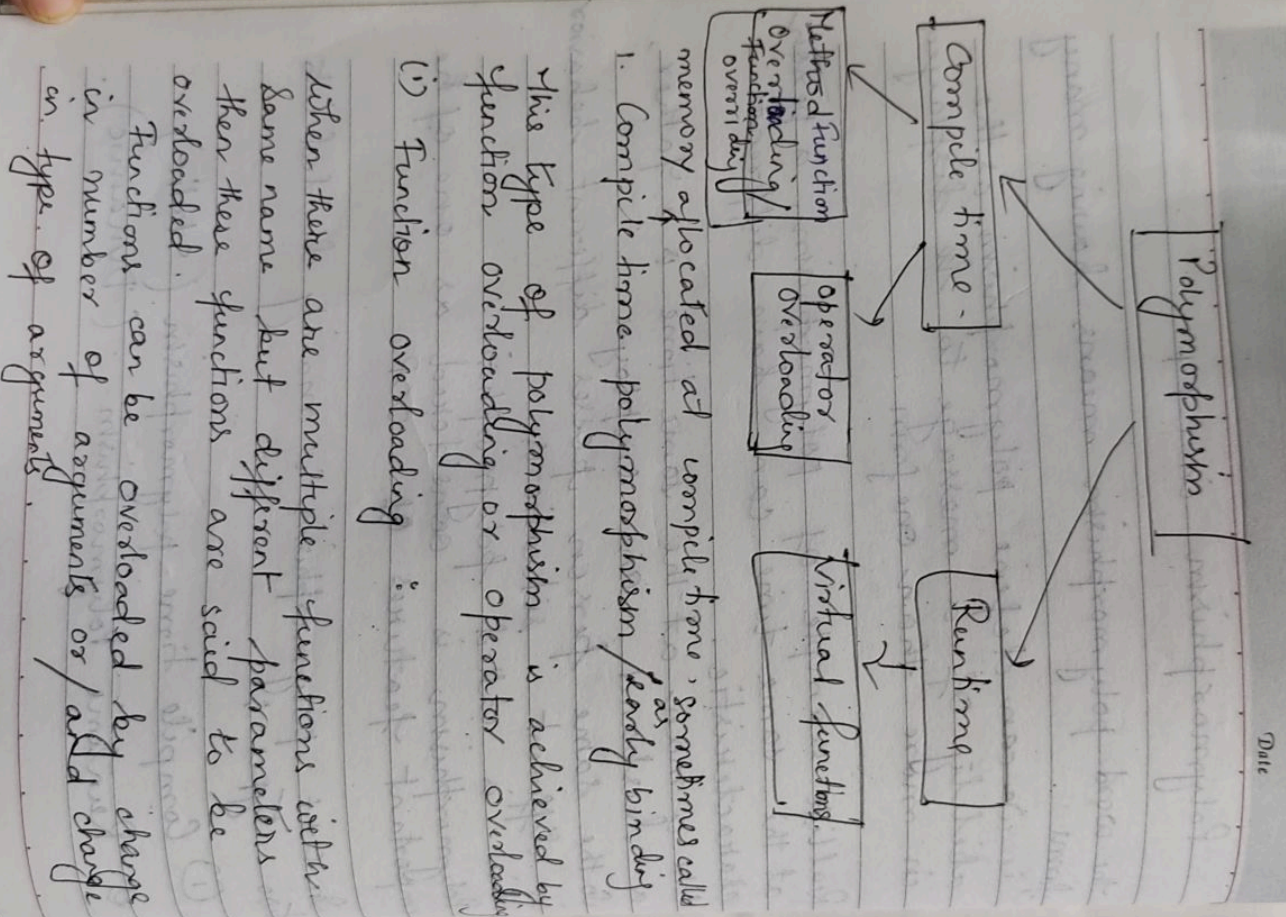 Date
Polymorphism
Compile time.
Runtime
Method Function
overloading/
Function
overriding
operator
overloading
Virtual functions.
memory allocated at compile time. sometimes called
as
1. Compile time polymorphism / early binding
This type of polymorphism is achieved by
function overloading or operator overloading
(i) Function overloading :
When there are multiple functions with
same name but different parameters
then these functions are said to be
overloaded.
Functions can be overloaded by change
in number of arguments or/and change
in type of arguments.